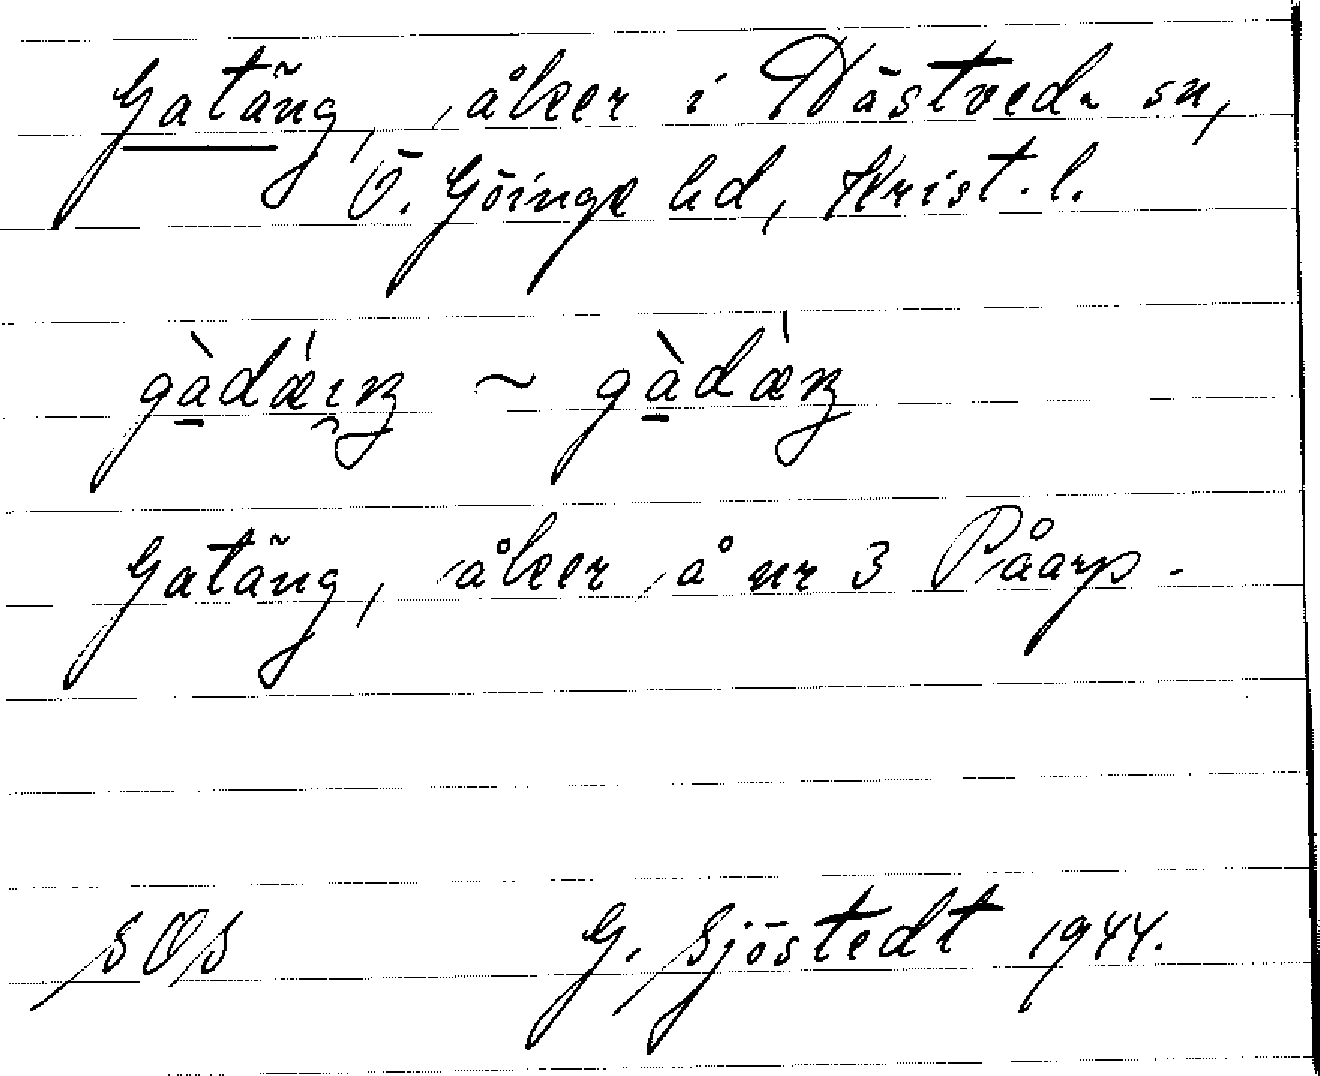 Gatäng, åker i Nästved. sn,
Ö. Göinge hd, Krist. l.
gàdǽıŋ ~ gàdǽŋ
Gatäng, åker å nr 3 Påarp.
SOS G. Sjöstedt 1944.